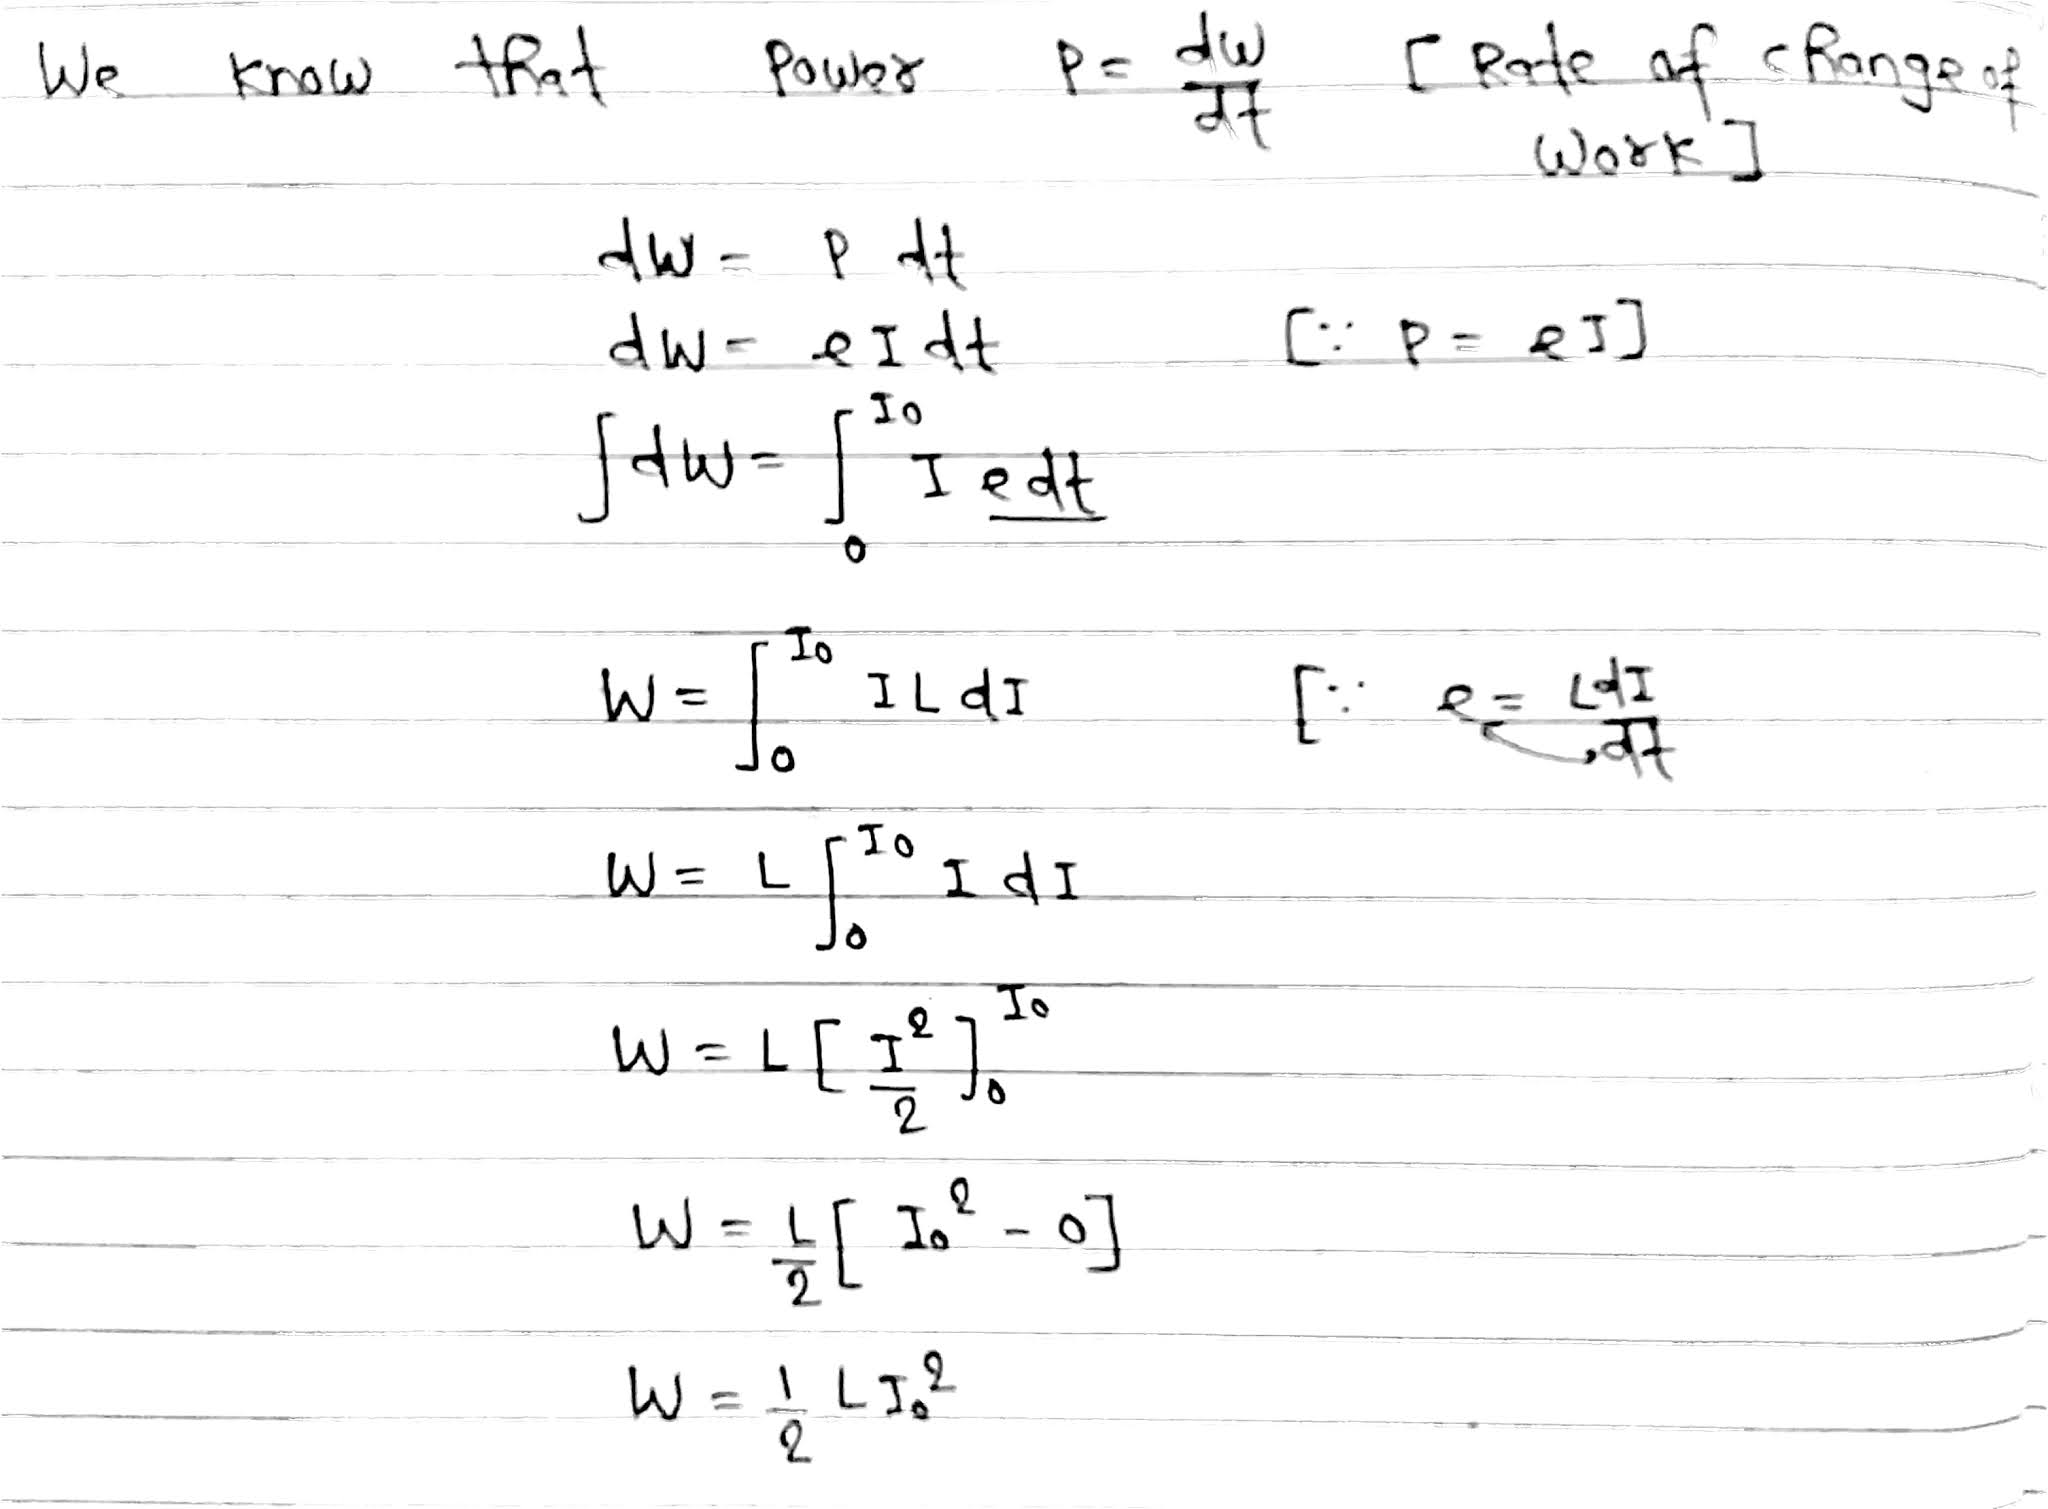 We know that Power P = dw/dt [Rate of change of
Work]
dw = P dt
dw = e I dt [∵ P = eI]
∫dw = ∫₀^I₀ I e dt
W = ∫₀^I₀ I L dI [∵ e = LdI/dt
W = L ∫₀^I₀ I dI
W = L [I²/2]₀^I₀
W = L/2 [I₀² - 0]
W = 1/2 L I₀²